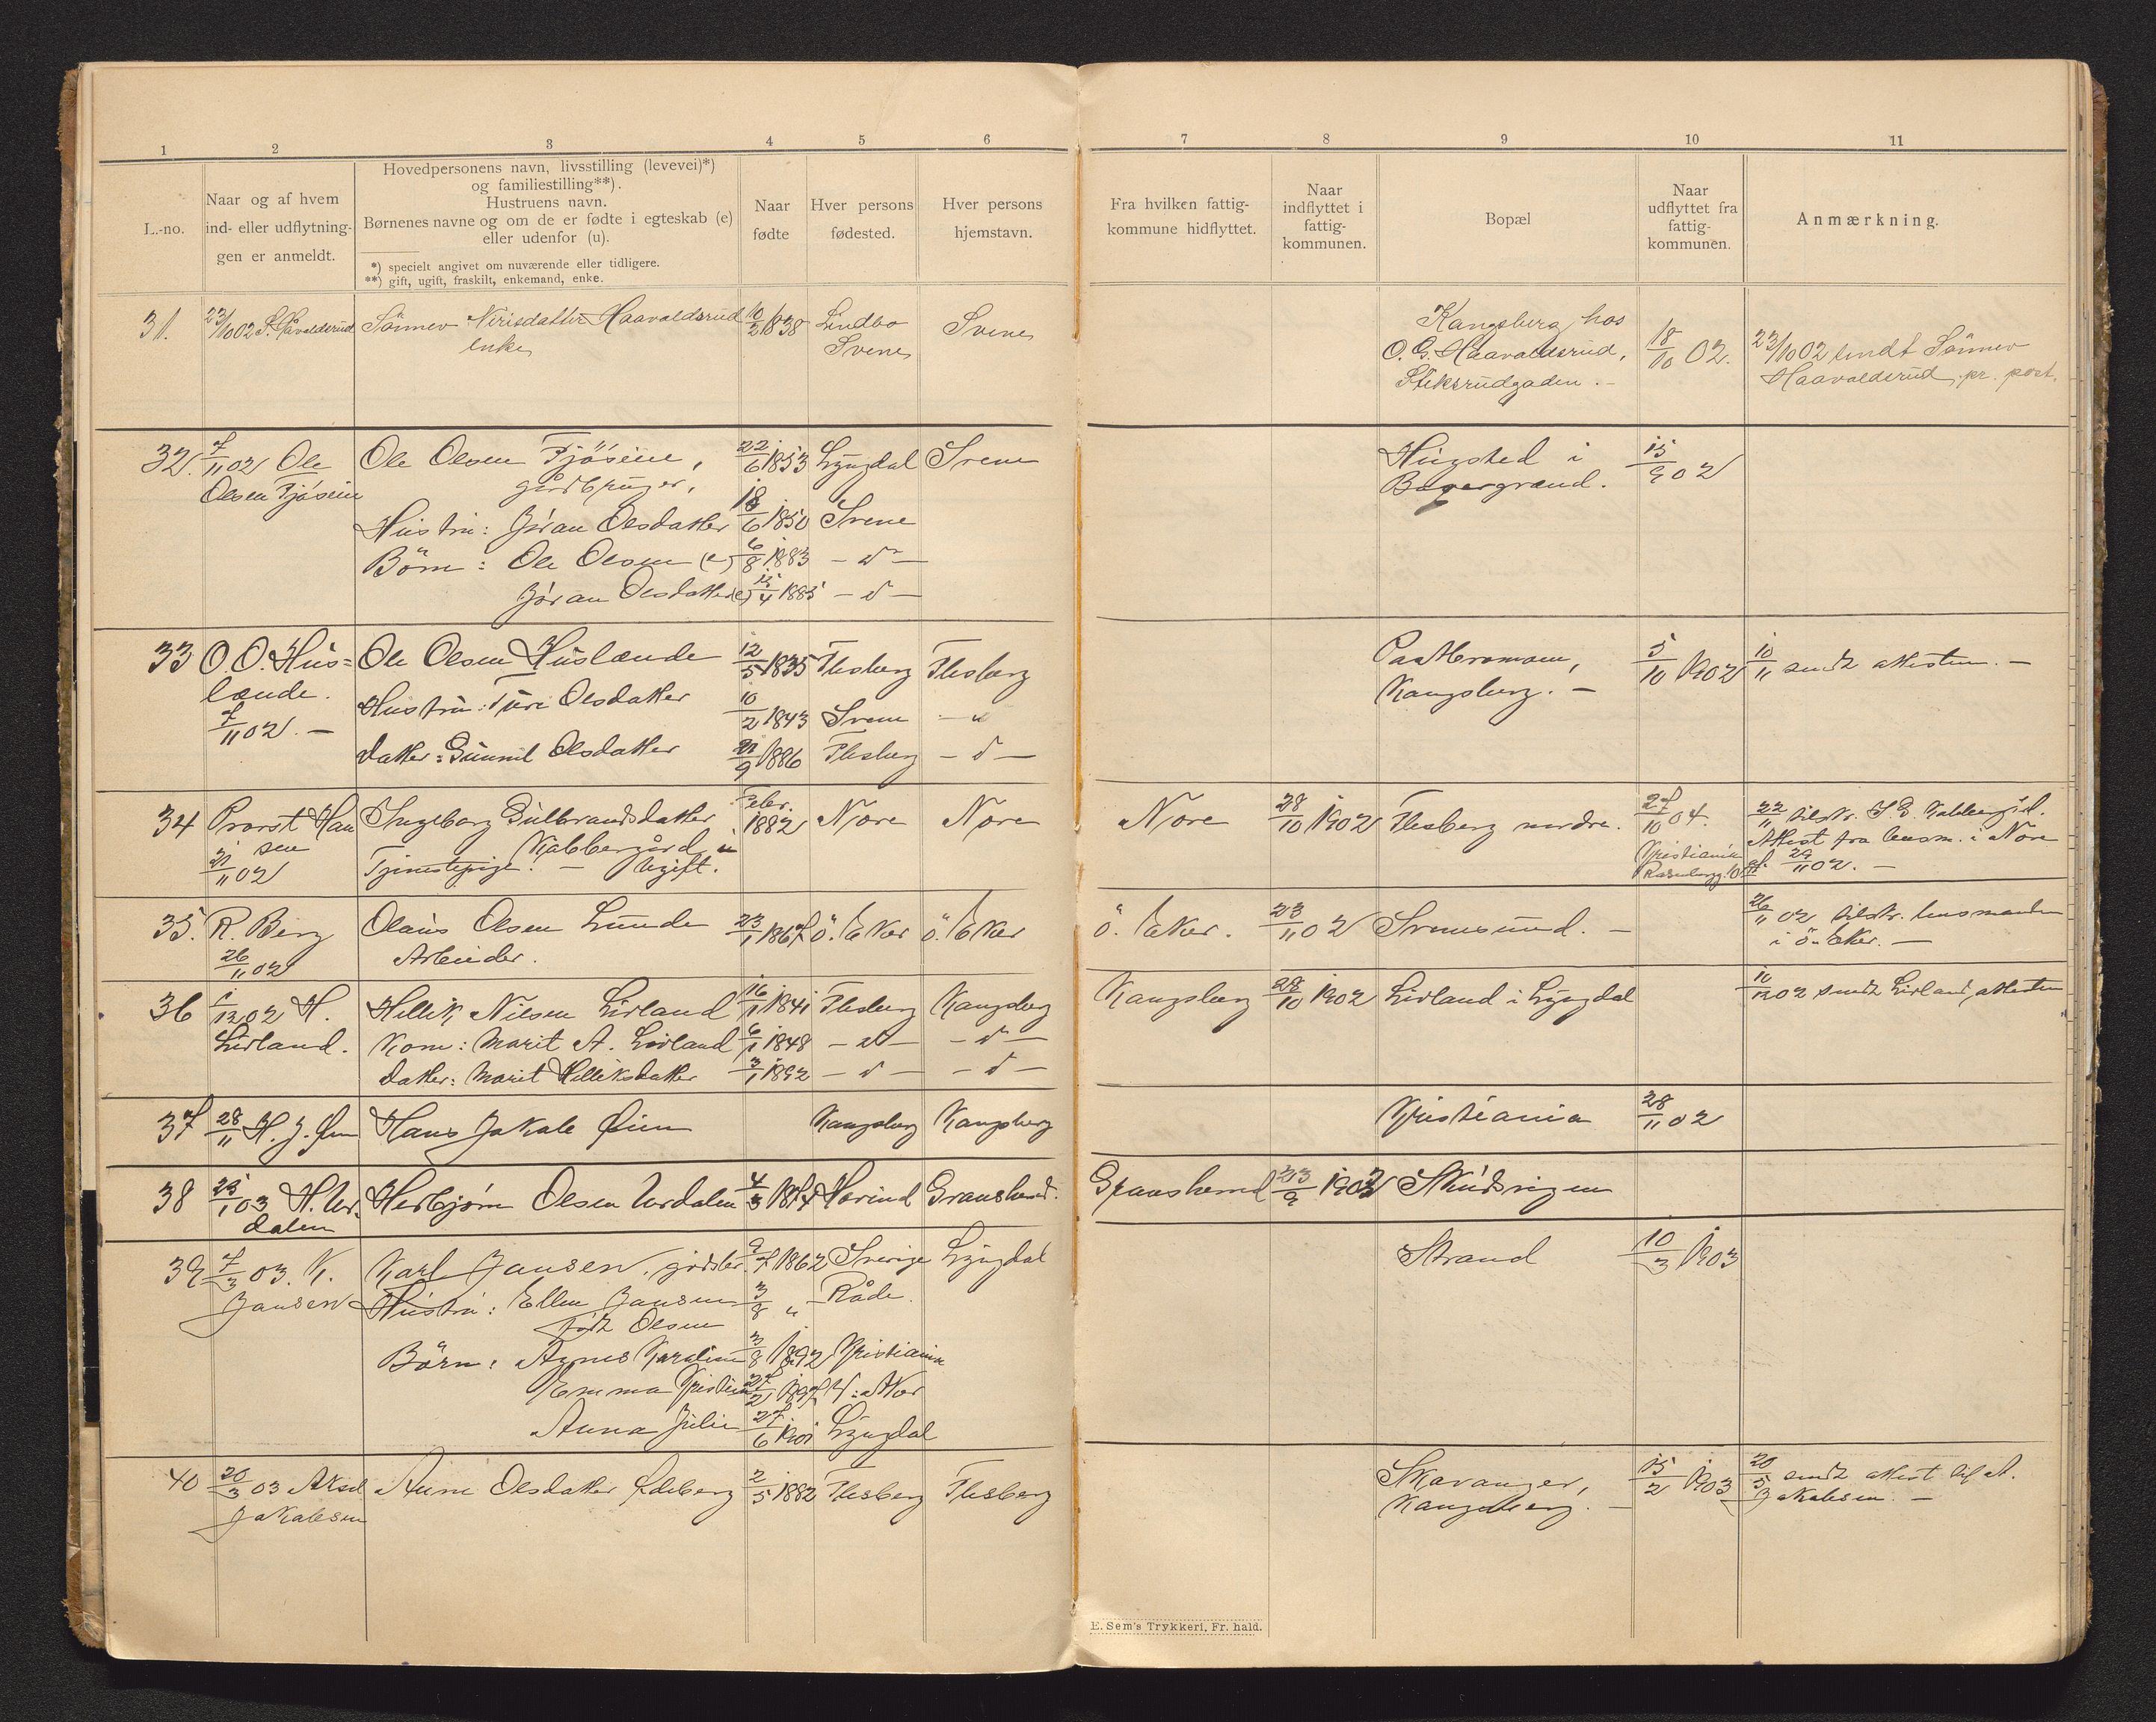 1 2 3 4 5 6 7 8 9 10 11
L.-no.
Naar og af hvem
ind- eller udflytnin-
gen er anmeldt.
Hovedpersonens navn, livsstilling (levevei)*)
og familiestilling**).
Hustruens navn.
Børnenes navne og om de er fødte i egteskab (e)
eller udenfor (u).
*) specielt angivet om nuværende eller tidligere.
**) gift, ugift, fraskilt, enkemand, enke.
Naar
fødte
Hver persons
fødested.
Hver persons
hjemstavn.
Fra hvilken fattig-
kommune hidflyttet.
Naar
indflyttet i
fattig-
kommunen.
Bopæl
Naar
udflyttet fra
fattig-
kommunen.
Anmærkning.
31. 23/10 02 Haavaldsrud Sönnev Nirisdatter Haavaldsrud 10/2 1838 Lindbo Svene
enke Svene
Kongsberg hos
O. G. Haavaldsrud,
18/10 02.
23/10 02 sendt Sönnev
Haavaldsrud pr. post.
32. 7/11 02 Ole Ole Olsen Fjösein, 22/6 1853 Lyngdal Svene
Olsen Fjösein gårdbruger,
Hustru: Jöran Olsdatter 18/6 1850 Svene
Börn: Ole Olsen (e) 6/8 1883 - d -
Jöran Olsdatter (e) 15/4 1885 - d -
Hugsted i 15/9 02
Bagergrænd.
33 O. O. Hus= Ole Olsen Huslænde 12/5 1835 Flesberg Flesberg
lænde. Hustru: Turi Olsdatter 10/2 1843 Svene - d
7/11 02. - Datter: Gunnil Olsdatter 21/9 1886 Flesberg - d -
Kongsberg. -
5/10 1902 10/11 sendt attesten. -
34 Provst Han Ingeborg Gulbrandsdatter Febr. 1882 Nore Nore
sen Kjabbergård
21/11 02 Tjenestepige. - Ugift.
Nore 28/10 1902 Flesberg nordre. 27/10 04.
Kristiania
Attest fra lensm. i Nore
29/11 02. -
35. R. Berg Olaus Olsen Lunde 23/1 1867 Ö. Eker Ö. Eker
26/11 02 Arbeider.
Ö. Eker. 23/11 02 Svenesund. - 26/11 02 tilskr. lensmanden
i Ö. Eker. -
36 1/12 02 H. Hellik Nilsen Livland 16/1 1841 Flesberg Kongsberg
Livland. Kone: Marit A. Livland 6/1 1848 - d - - d -
Datter: Marit Helliksdatter 3/1 1892 - d - - d -
Kongsberg 28/10 1902 Livland i Lyngdal 10/12 02 sendt Livland attesten
37 28/11 H. J. Øien Hans Jakob Øien Kongsberg Kongsberg
Kristiania 28/11 02
38 25/1 03 H. Ur- Herbjörn Olsen Urdalen 4/3 1874 Hovind Gransherad.
dalen
Gransherad 23/9 1902 Skudsrigen
39 7/3 03. K. Karl Jansen, 9/7 1862 Sverige Lyngdal
Jansen Hustru: Ellen Jansen 3/8 " Råde
född Olsen
Börn: Agnes Karoline 3/8 1892 Kristiania
Emma Kristine 27/2 1897
Anna Julie 27/6 1901 Lyngdal
Strand 10/3 1903
40 20/3 03 Aksel Anne Olsdatter Ødeberg 2/5 1882 Flesberg Flesberg
Jakobsen
Skavanger, 15/2 1903 20/5 sendt attest til A.
Kongsberg. - Jakobsen. -
E. Sem's Trykkeri, Fr. hald.